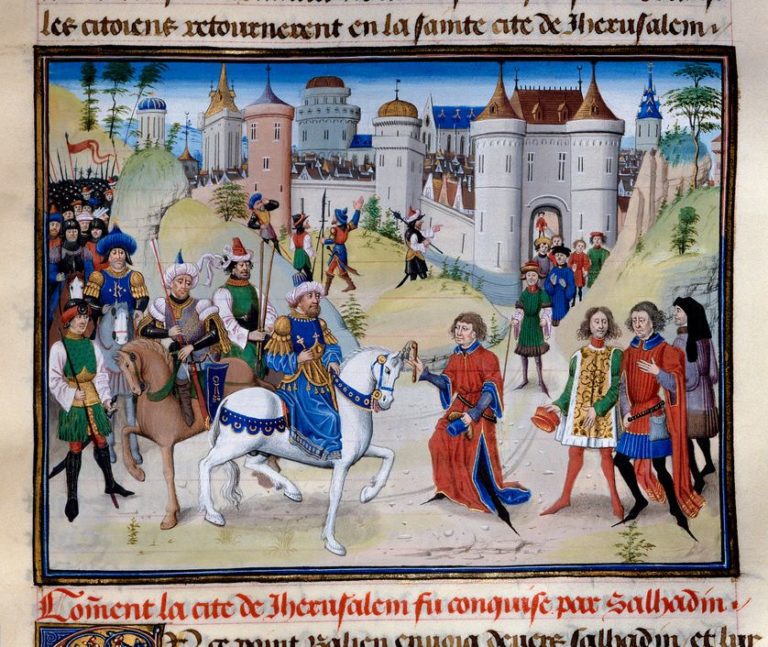 les citoiens retournerent en la sainte cite de Jherusalem.
Com̃ent la cite de Jherusalem fu conquise par Salhadin.
En ce point Balien envoia devers salhadin et luy